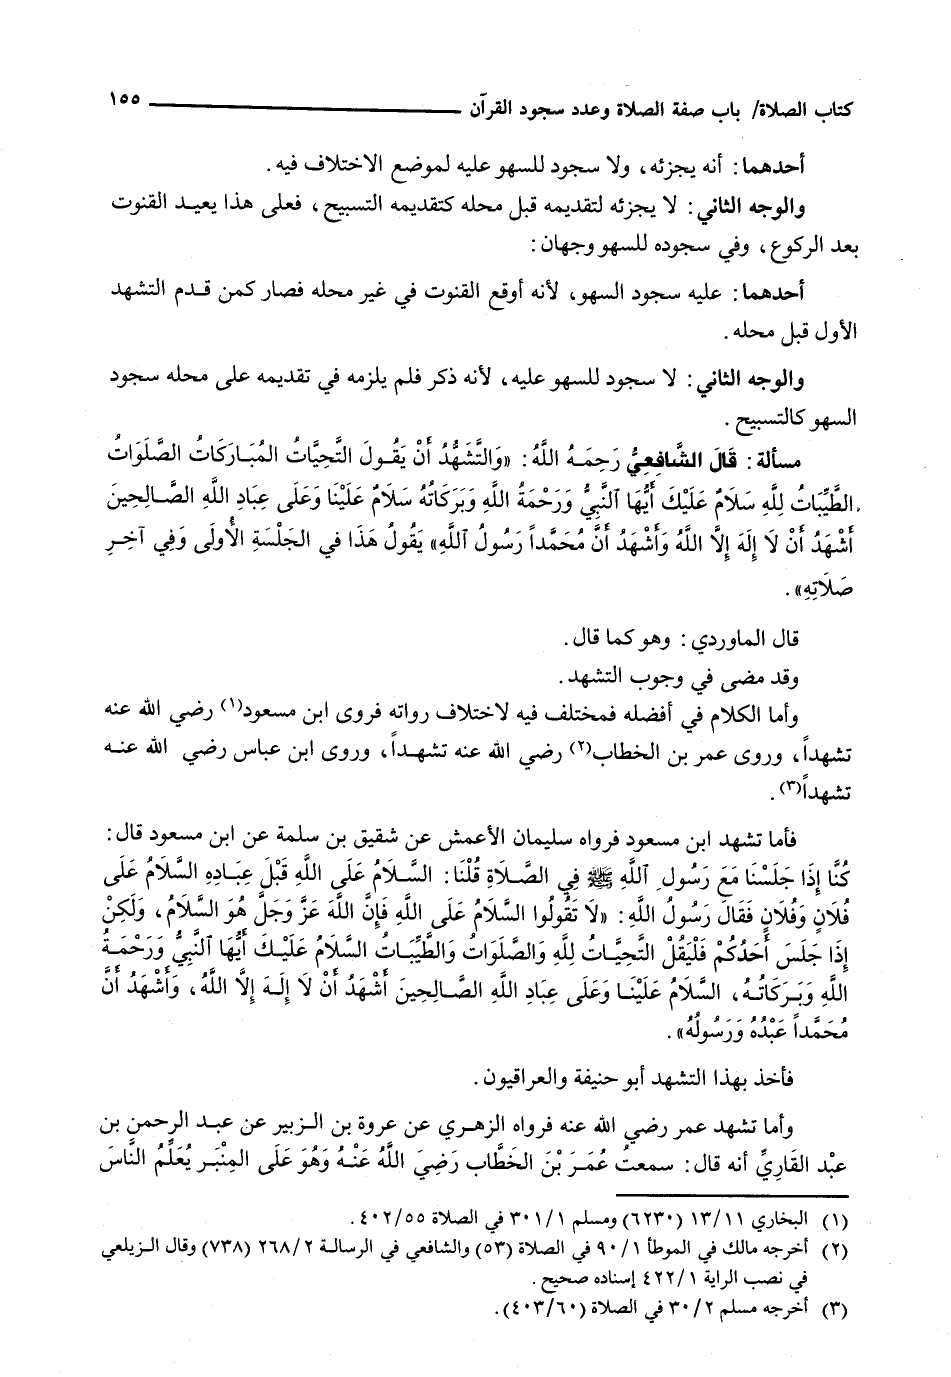 كتاب الصلاة/ باب صفة الصلاة وعدد سجود القرآن ١٥٥
أحدهما: أنه يجزئه، ولا سجود للسهو عليه لموضع الاختلاف فيه.
والوجه الثاني: لا يجزئه لتقديمه قبل محله كتقديمه التسبيح، فعلى هذا يعيد القنوت
بعد الركوع، وفي سجوده للسهو وجهان:
أحدهما: عليه سجود السهو، لأنه أوقع القنوت في غير محله فصار كمن قدم التشهد
الأول قبل محله.
والوجه الثاني: لا سجود للسهو عليه، لأنه ذكر فلم يلزمه في تقديمه على محله سجود
السهو كالتسبيح.
مسألة: قَالَ الشَّافِعِيُّ رَحِمَهُ اللَّهُ: «وَالتَّشَهُّدُ أَنْ يَقُولَ التَّحِيَّاتُ المُبَارَكَاتُ الصَّلَوَاتُ
الطَّيِّبَاتُ لِلَّهِ سَلَامٌ عَلَيْكَ أَيُّهَا النَّبِيُّ وَرَحْمَةُ اللَّهِ وَبَرَكَاتُهُ سَلَامٌ عَلَيْنَا وَعَلَى عِبَادِ اللَّهِ الصَّالِحِينَ
أَشْهَدُ أَنْ لَا إِلَهَ إِلَّا اللَّهُ وَأَشْهَدُ أَنَّ مُحَمَّداً رَسُولُ اللَّهِ» يَقُولُ هَذَا فِي الجَلْسَةِ الأُولَى وَفِي آخِرِ
صَلَاتِهِ».
قال الماوردي: وهو كما قال.
وقد مضى في وجوب التشهد.
وأما الكلام في أفضله فمختلف فيه لاختلاف رواته فروى ابن مسعود(١) رضي الله عنه
تشهداً، وروى عمر بن الخطاب(٢) رضي الله عنه تشهداً، وروى ابن عباس رضي الله عنه
تشهداً(٣).
فأما تشهد ابن مسعود فرواه سليمان الأعمش عن شقيق بن سلمة عن ابن مسعود قال:
كُنَّا إِذَا جَلَسْنَا مَعَ رَسُولِ اللَّهِ ﷺ فِي الصَّلَاةِ قُلْنَا: السَّلَامُ عَلَى اللَّهِ قَبْلَ عِبَادِهِ السَّلَامُ عَلَى
فُلَانٍ وَفُلَانٍ فَقَالَ رَسُولُ اللَّهِ: «لَا تَقُولُوا السَّلَامُ عَلَى اللَّهِ فَإِنَّ اللَّهَ عَزَّ وَجَلَّ هُوَ السَّلَامُ، وَلَكِنْ
إِذَا جَلَسَ أَحَدُكُمْ فَلْيَقُلْ التَّحِيَّاتُ لِلَّهِ وَالصَّلَوَاتُ وَالطَّيِّبَاتُ السَّلَامُ عَلَيْكَ أَيُّهَا النَّبِيُّ وَرَحْمَةُ
اللَّهِ وَبَرَكَاتُهُ، السَّلَامُ عَلَيْنَا وَعَلَى عِبَادِ اللَّهِ الصَّالِحِينَ أَشْهَدُ أَنْ لَا إِلَهَ إِلَّا اللَّهُ، وَأَشْهَدُ أَنَّ
مُحَمَّداً عَبْدُهُ وَرَسُولُهُ».
فأخذ بهذا التشهد أبو حنيفة والعراقيون.
وأما تشهد عمر رضي الله عنه فرواه الزهري عن عروة بن الزبير عن عبد الرحمن بن
عَبْد القَارِيِّ أنه قال: سمعتُ عُمَرَ بْنَ الخَطَّابِ رَضِيَ اللَّهُ عَنْهُ وَهُوَ عَلَى المِنْبَرِ يُعَلِّمُ النَّاسَ
(١) البخاري ١١/ ١٣ (٦٢٣٠) ومسلم ١/ ٣٠١ في الصلاة ٥٥/ ٤٠٢.
(٢) أخرجه مالك في الموطأ ١/ ٩٠ في الصلاة (٥٣) والشافعي في الرسالة ٢/ ٢٦٨ (٧٣٨) وقال الزيلعي
في نصب الراية ١/ ٤٢٢ إسناده صحيح.
(٣) أخرجه مسلم ٢/ ٣٠ في الصلاة (٦٠/ ٤٠٣).